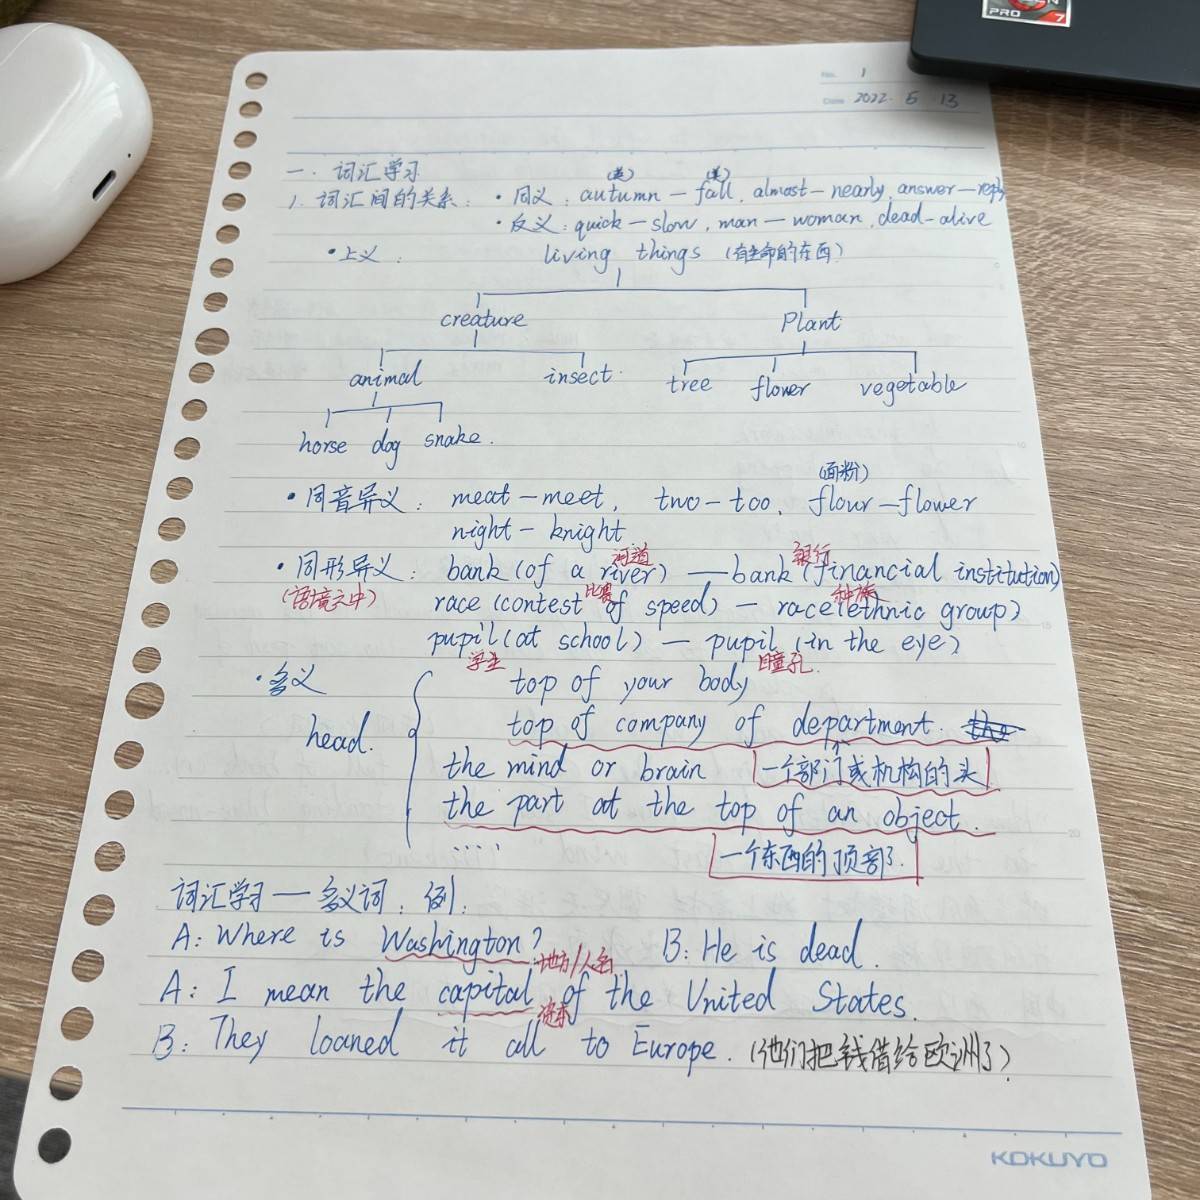 PRO 7
No. 1
Date 2022. 5 13
一. 词汇学习
(英) (美)
1. 词汇间的关系: · 同义: autumn — fall, almost — nearly, answer — reply
· 反义: quick — slow, man — woman, dead — alive
· 上义: living things (有生命的东西)
creature Plant
animal insect. tree flower vegetable
horse dog snake.
(面粉)
· 同音异义: meat — meet, two — too, flour — flower
night — knight
河道 银行
· 同形异义: bank (of a river) — bank (financial institution)
比赛 种族
(语境之中) race (contest of speed) — race (ethnic group)
pupil (at school) — pupil (in the eye)
学生 瞳孔
· 多义 top of your body
top of company of department.
head. the mind or brain 一个部门或机构的头
the part at the top of an object.
..... 一个东西的顶部.
词汇学习 — 多义词: 例:
A: Where is Washington? B: He is dead.
地方/人名
A: I mean the capital of the United States.
B: They loaned it all to Europe. (他们把钱借给欧洲了)
KOKUYO